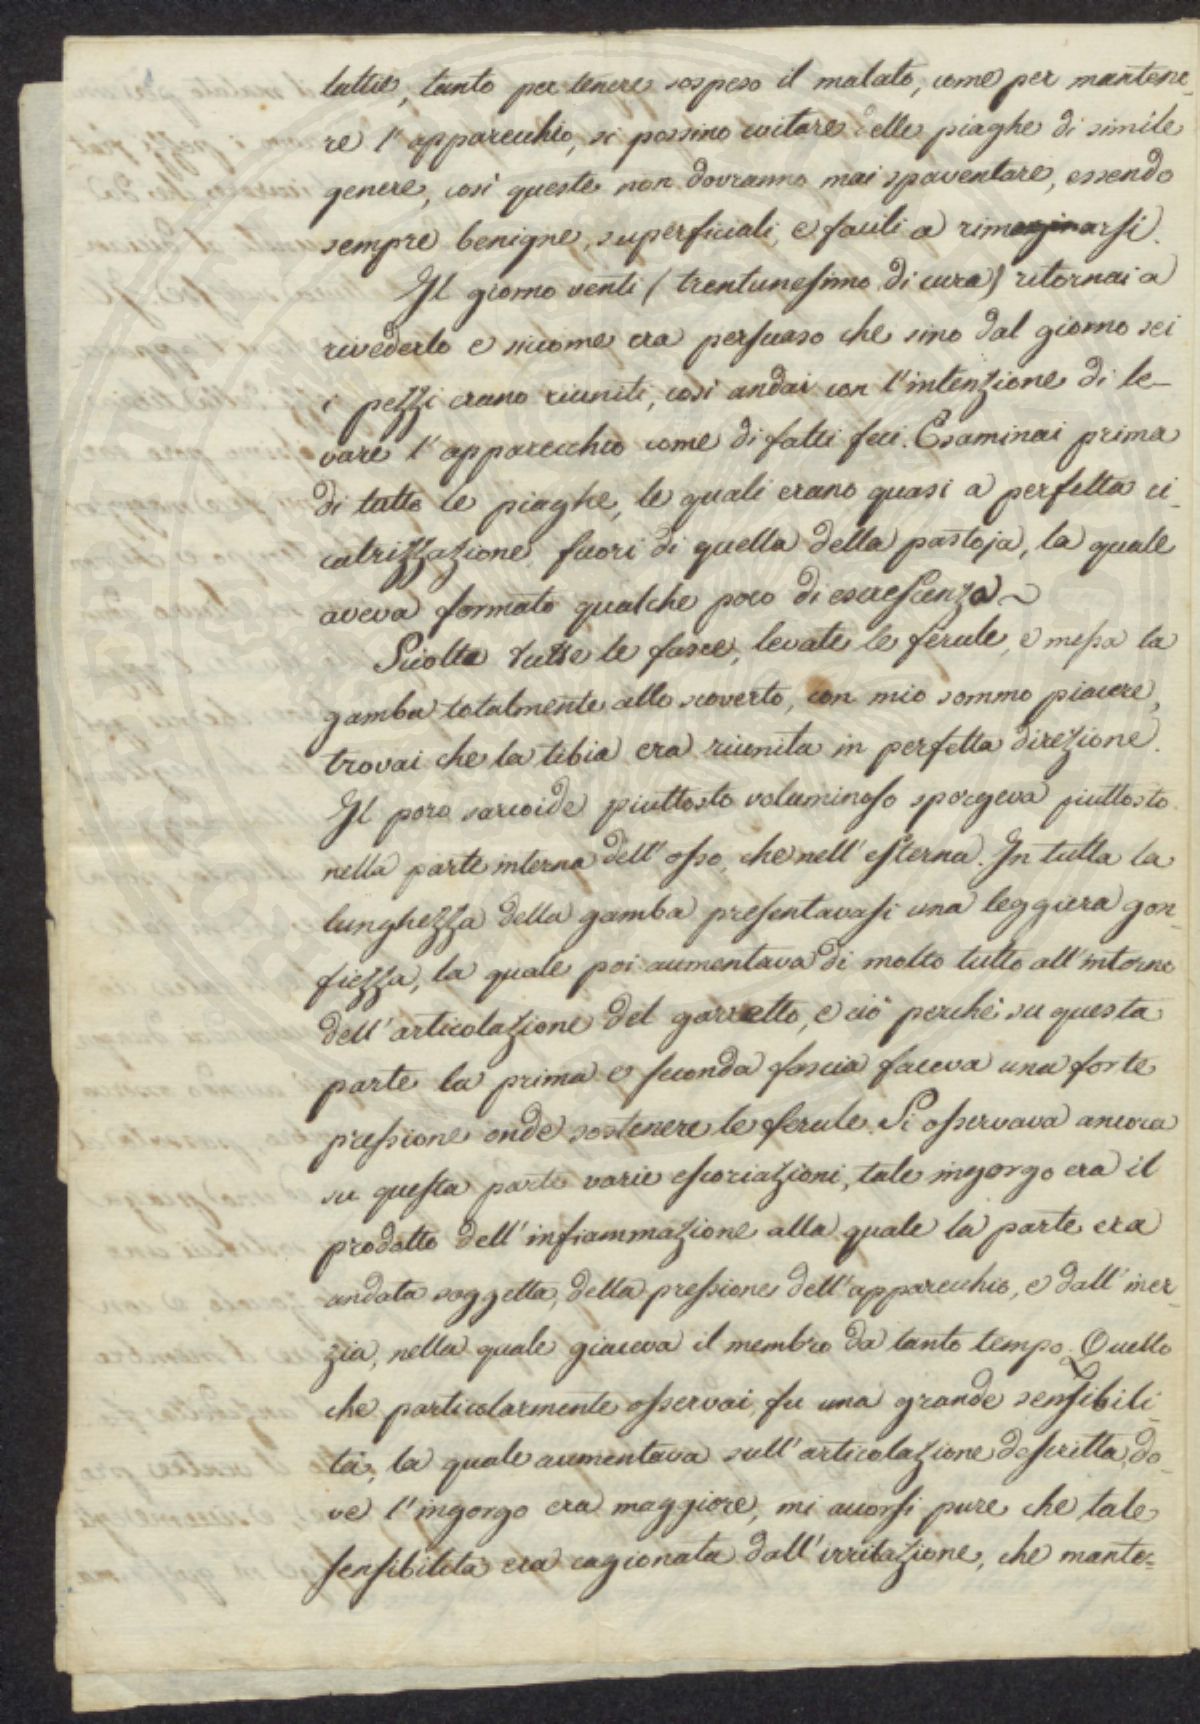 tutto, tanto per tenere sospeso il malato, come per mantene-
re l'apparecchio, si possino evitare delle piaghe di simile
genere, così queste non dovranno mai spaventare, essendo
sempre benigne, superficiali, e facili a rimarginarsi.
Il giorno venti (trentunesimo di cura) ritornai a
rivederlo e siccome era persuaso che sino dal giorno sei
i pezzi erano riuniti, così andai con l'intenzione di le-
vare l'apparecchio come di fatti feci. Esaminai prima
di tutto le piaghe, le quali erano quasi a perfetta ci-
catrizzazione, fuori di quella della pastoja, la quale
aveva formato qualche poco di escrescenza ~
Sciolta tutte le fasce, levate le ferule, e messa la
gamba totalmente allo scoverto, con mio sommo piacere,
trovai che la tibia era riunita in perfetta direzione.
Il poro sarcoide piuttosto voluminoso sporgeva piuttosto
nella parte interna dell'osso, che nell'esterna. In tutta la
lunghezza della gamba presentavasi una leggiera gon-
fiezza, la quale poi aumentava di molto tutto all'intorno
dell'articolazione del garretto, e ciò perchè su questa
parte la prima e seconda fascia faceva una forte
pressione onde sostenere le ferule. Si osservava ancora
su questa parte varie escoriazioni, tale ingorgo era il
prodotto dell'infiammazione alla quale la parte era
andata soggetta, della pressione dell'apparecchio, e dall'iner-
zia, nella quale giaceva il membro da tanto tempo. Quello
che particolarmente osservai, fu una grande sensibili-
tà, la quale aumentava sull'articolazione descritta, do-
ve l'ingorgo era maggiore, mi accorsi pure che tale
sensibilità era cagionata dall'irritazione, che mante-